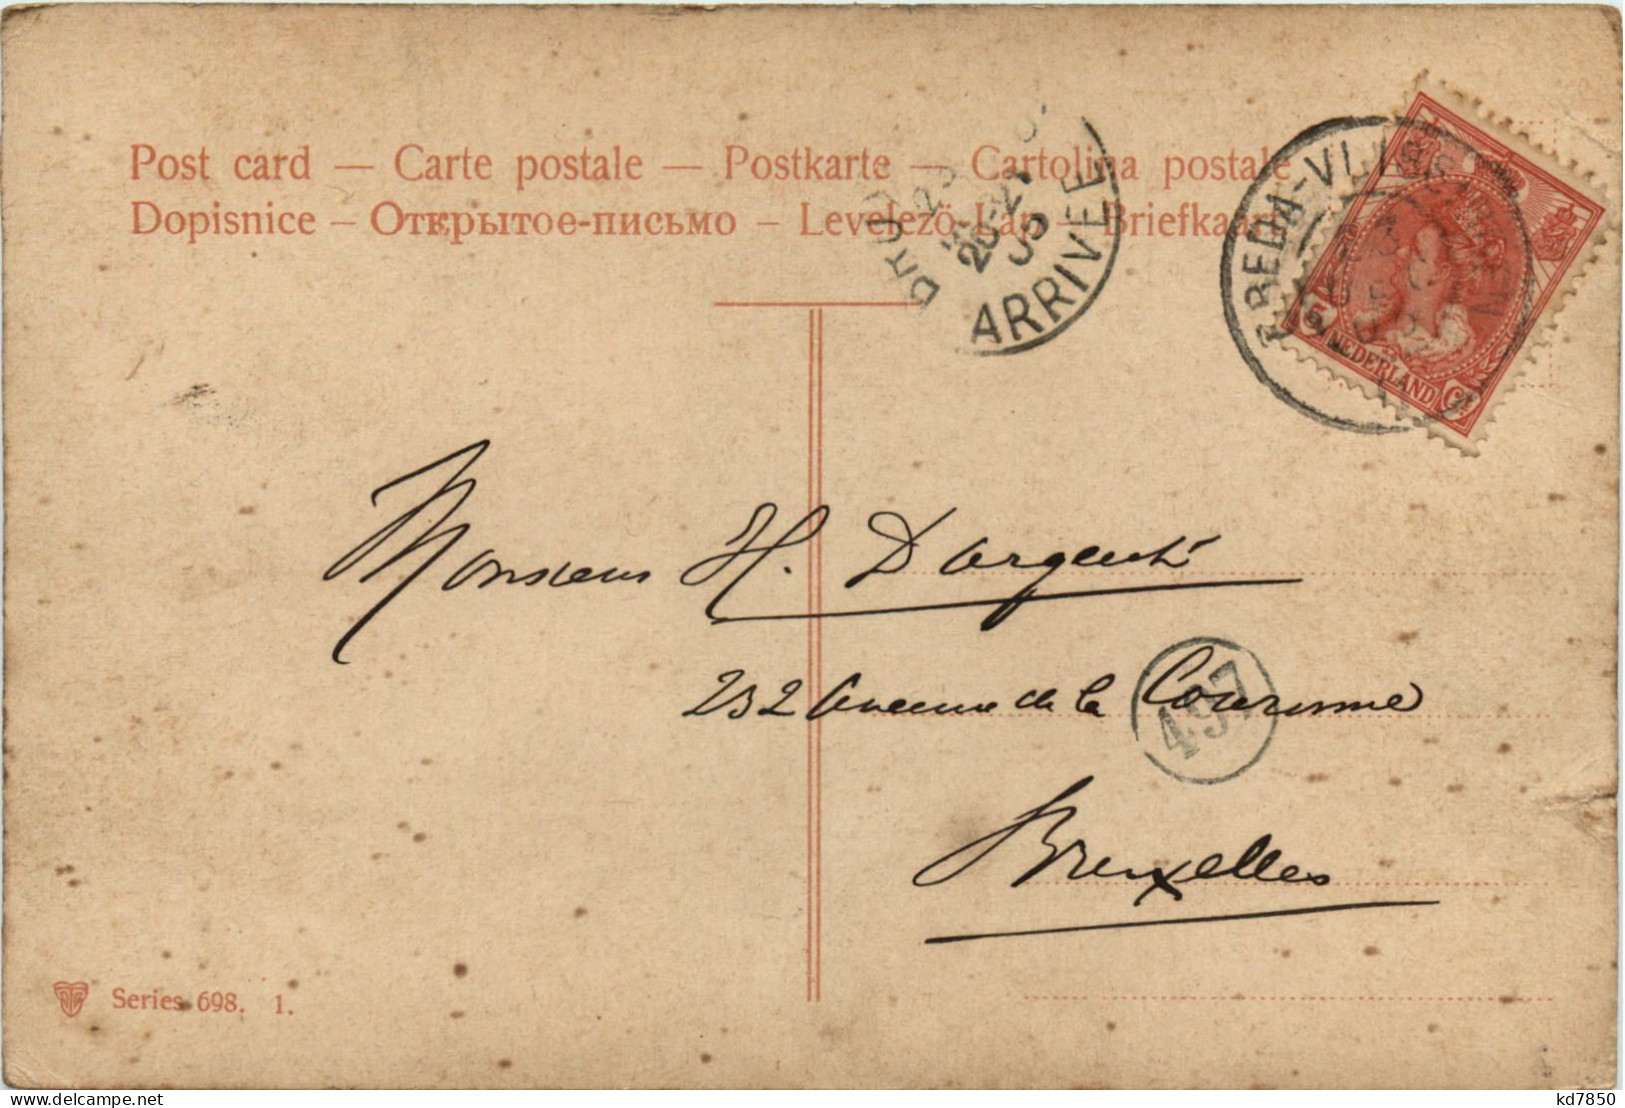 Post card — Carte postale — Postkarte — Cartolina postale
Dopisnice — Открытое-письмо — Levelezö-Lap — Briefkaart
20-21
05
ARRIVEE
BREDA-VLISSINGEN
5 NEDERLAND Ct
Monsieur H. Dargent
232 Avenue de la Couronne
497
Bruxelles
Series 698. 1.
kd7850